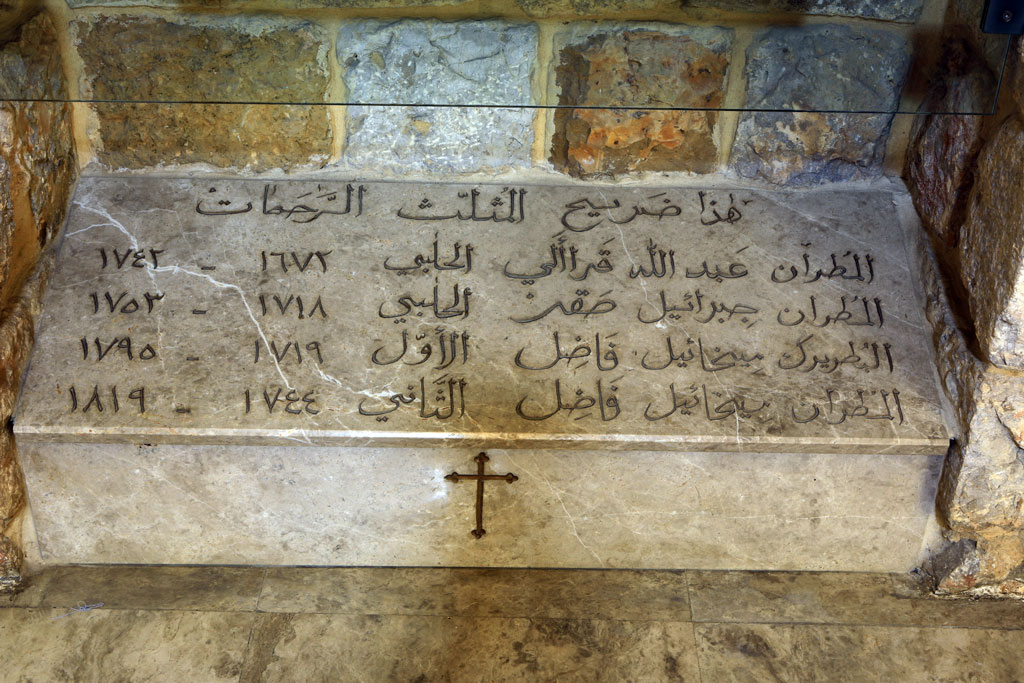 هٰذا ضَريح المُثلّث الرَّحمات
المُطران عَبد الله قَراألي الحَلبي ١٦٧٢ - ١٧٤٢
المُطران جِبرائيل صَقر الحَلبي ١٧١٨ - ١٧٥٣
البُطريرك مِيخائيل فَاضِل الأوّل ١٧١٩ - ١٧٩٥
المُطران مِيخائيل فَاضِل الثَّاني ١٧٤٤ - ١٨١٩